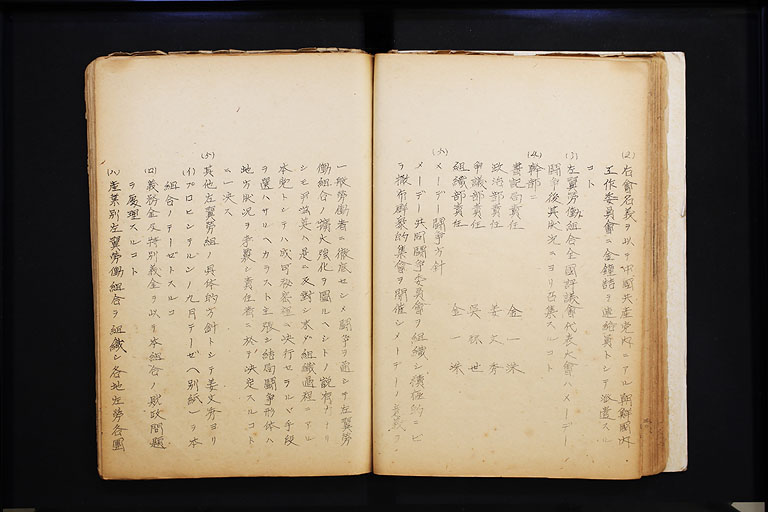 (2) 右會名義ヲ以テ中國共産党内ニアル朝鮮國内
工作委員會ニ金鐘語ヲ連絡員トシテ派遣スル
コト
(3) 左翼労働組合全國評議會代表大會ハメーデー
闘争後其状況ニヨリ召集スルコト
(4) 幹部ニ
書記局責任 金一洙
政治部責任 姜文秀
争議部責任 呉祺世
組織部責任 金一洙
メーデー闘争方針
メーデー共同闘争委員會ヲ組織シ積極的ニビ
ヲ撒布群衆的集會ヲ開催シメーデーノ意義ヲ
一般労働者ニ徹底セシメ闘争ヲ通シテ左翼労
働組合ノ擴大強化ヲ圖ルヘシトノ説有
是ニ反對シ未ダ組織過程ニアル
本党トシテハ決行セラルゝ手段
ヲ選ハサルヘカラスト主張シ結局闘争形体ハ
地方状況ヲ考慮シ責任者ニ於テ決定スルコト
ニ一決ス
(5) 其他左翼労組ノ具体的方針トシテ姜文秀ヨリ
(イ) プロヒンテルンノ九月テーゼヘ別紙一ヲ本
組合ノテーゼトスルコ
(ロ) 義務金及特別義金ヲ以テ本組合ノ財政問題
ヲ處理スルコト
(ハ) 産業別左翼労働組合ヲ組織シ各地左労各團